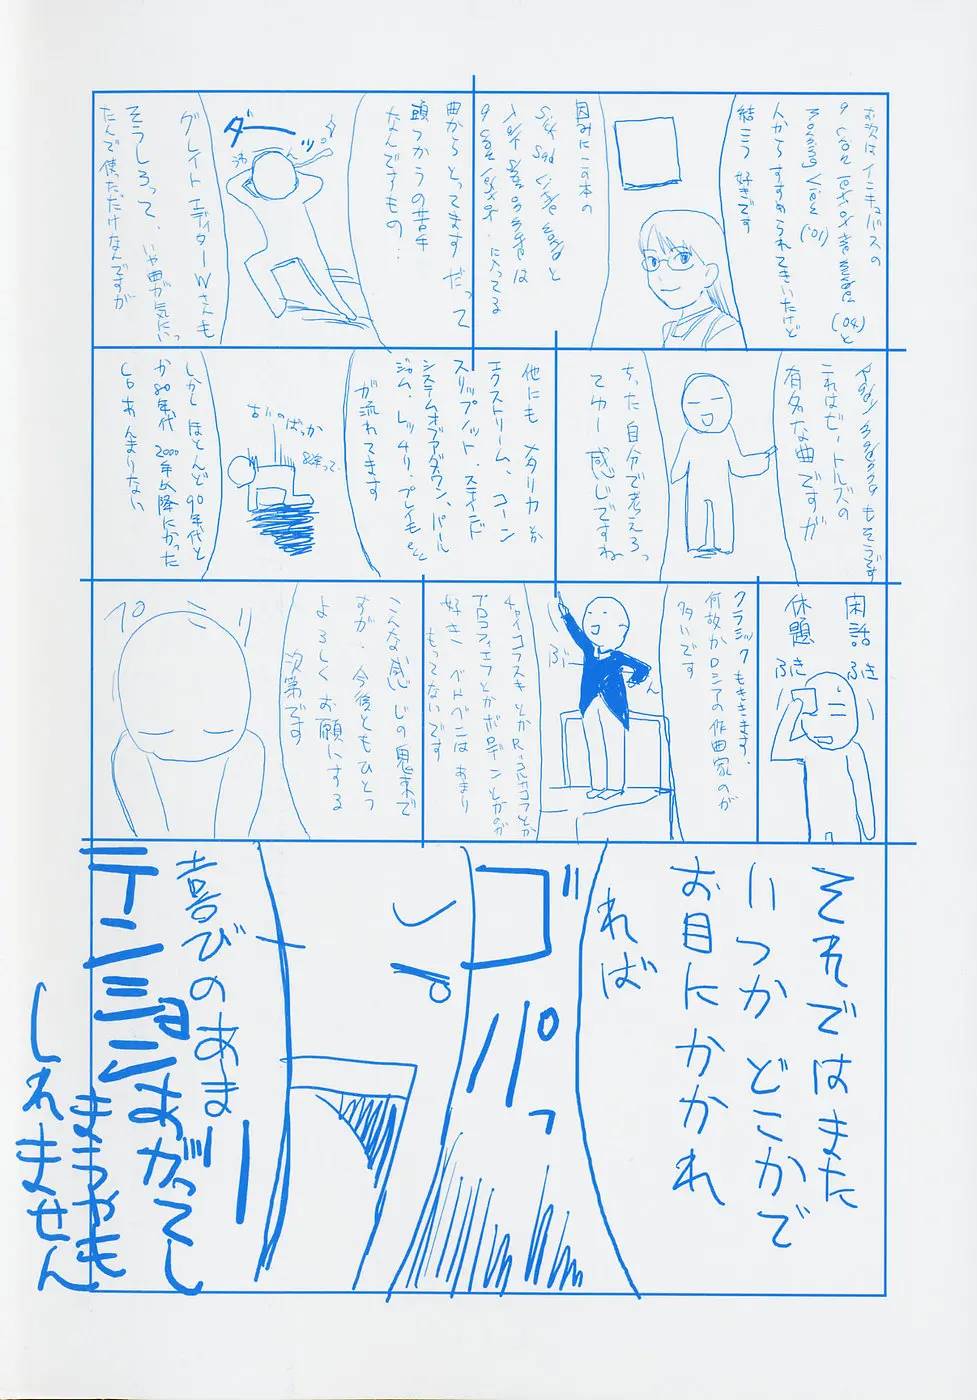 お次はインキュバスの
('04)と
('01)
人からすすめられてきいたけど
結こう好きです
因みにこの本の
Sad Sad
に入ってる
曲からとってます だって
頭つかうの苦手
なんですもの…
ダーッ
グレイト エディターWさんも
そうしろって、いや曲が気にいっ
たんで使っただけなんですが
もそうです
これはビートルズの
有名な曲ですが
ちった自分で考えろっ
てゆー感じですね
他にも メタリカとか
エクストリーム、コーン
スリップノット・ステインド
システムオブアダウン、パール
ジャム、レッチリ・プレイモetc
が流れてます
古いのばっか
しかし ほとんど90年代と
か80年代 2000年以降になった
CDあんまりない
閑話ふき
休題ふき
クラシックもききます、
何故かロシアの作曲家のが
多いです
ぶーん
チャイコフスキとかR=コルサコフとか
プロコフィエフとかボロディンとかのが
好き ベトベンはあまり
もってないです
こんな感じの鬼束で
すが、今後ともひとつ
よろしくお願いする
次第です
ペコ
それではまた
いつか どこかで
お目にかかれ
れば
ゴ
パッ
喜びのあまり
テンションあがってし
まうやも
しれません